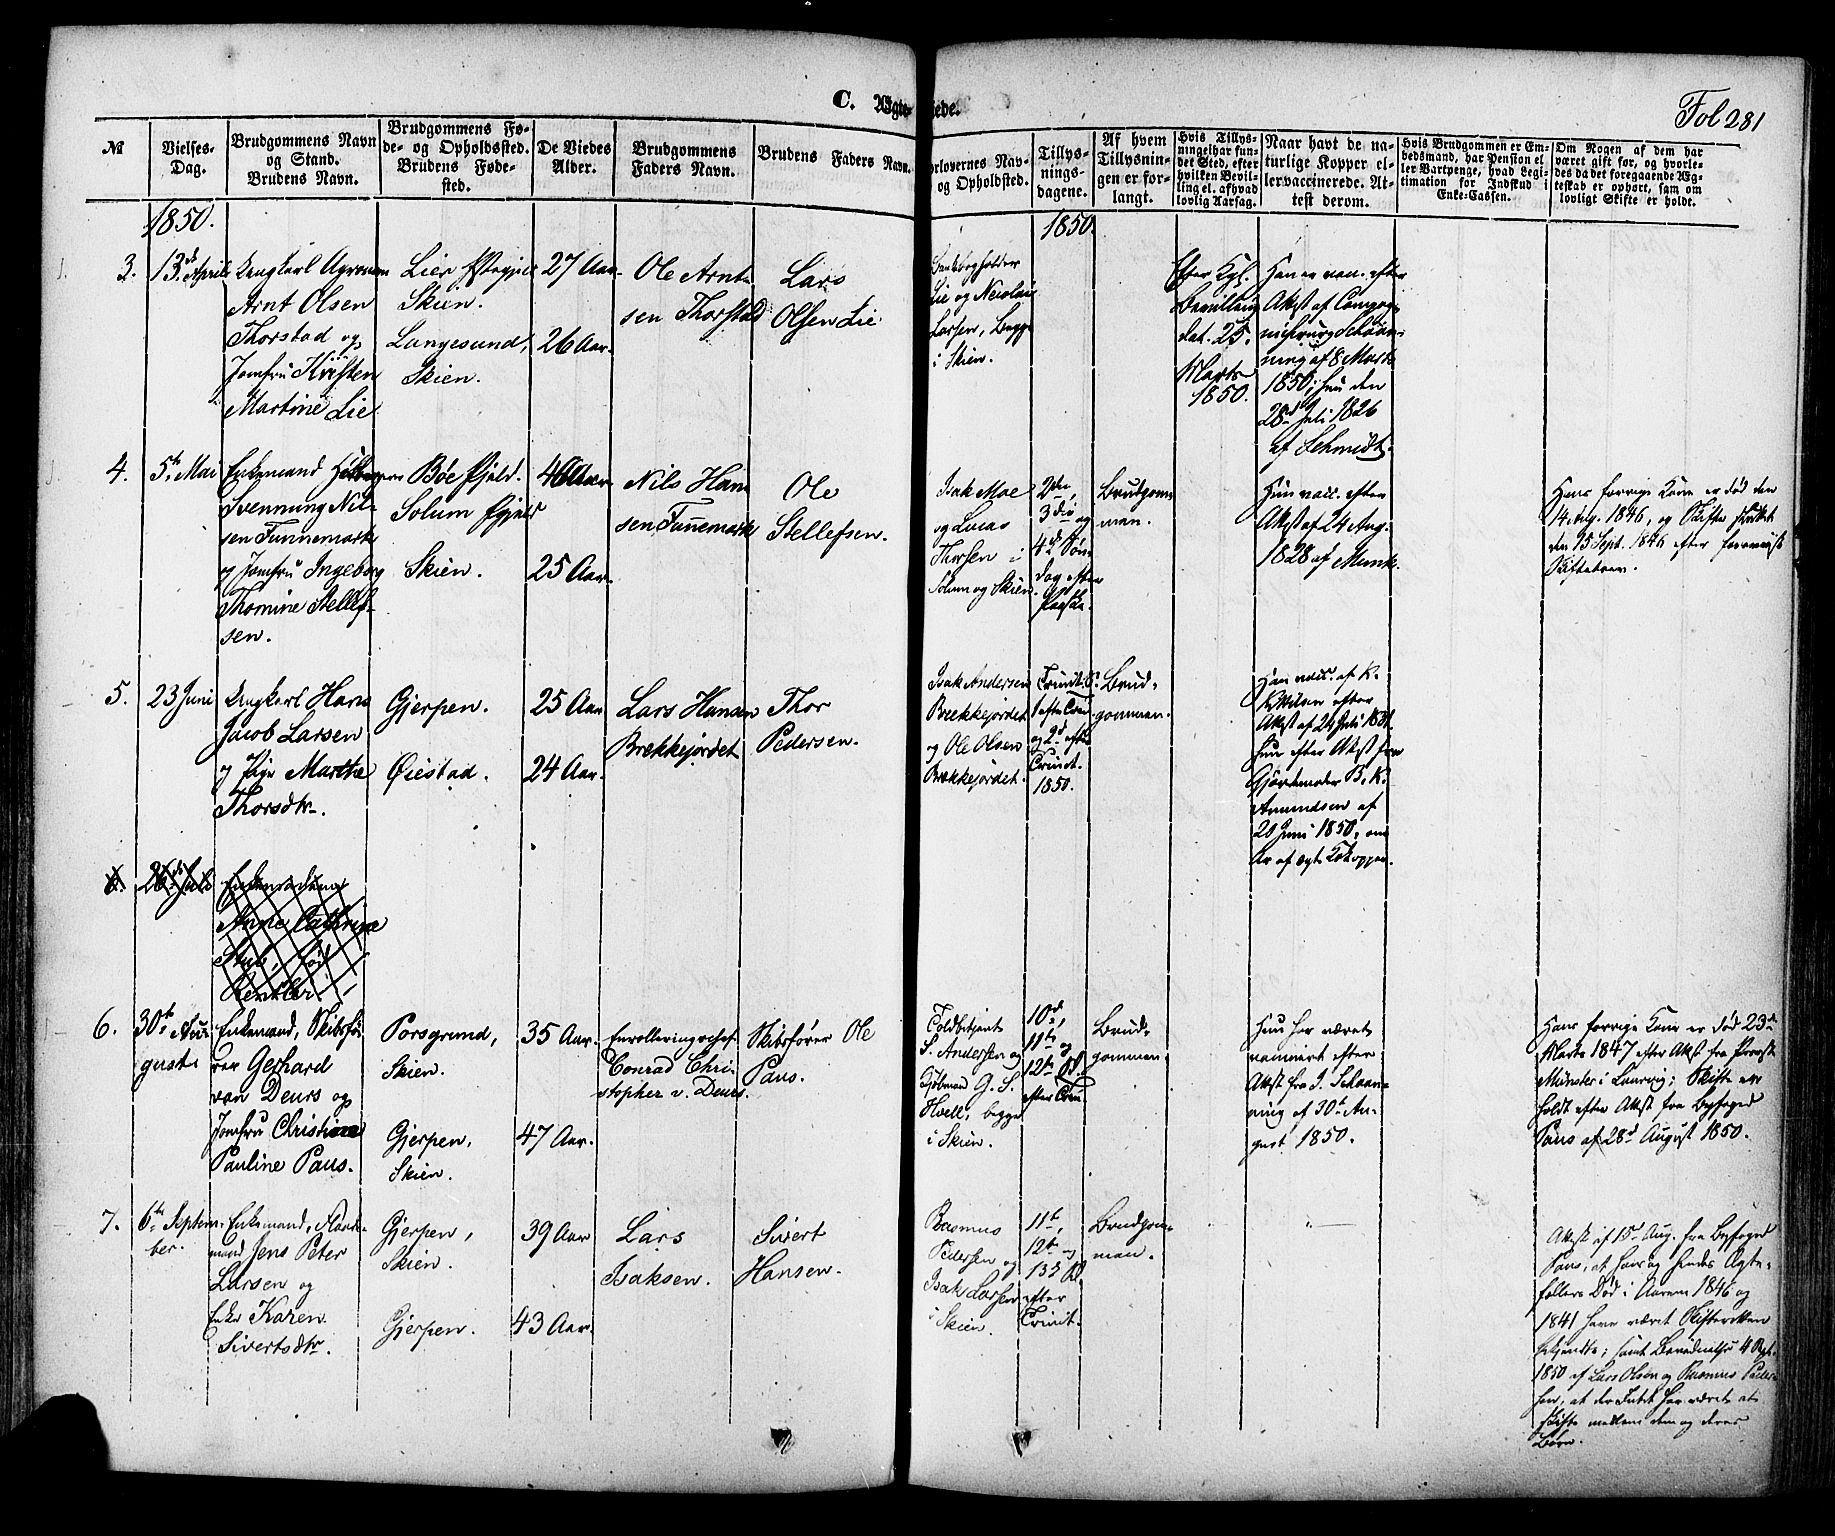 C. Ægteviede.
Fol 281
№
Vielses-
Dag.
Brudgommens Navn
og Stand.
Brudens Navn.
Brudgommens Fø-
de- og Opholdssted.
Brudens Føde-
sted.
De Viedes
Alder.
Brudgommens
Faders Navn.
Brudens Faders Navn.
orlovernes Nav-
og Opholdsted.
Tillys-
nings-
dagene.
Af hvem
Tillysnin-
gen er for-
langt.
Hvis Tillys-
ningel har fun-
det Sted, efter
hvilken Bevil-
ling el. afhvad
lovlig Aarsag.
Naar havt de na-
turlige Kopper el-
ler vaccinerede. At-
test derom.
Hvis Brudgommen er Em-
bedsmand, har Pension el
ler Vartpenge, hvad Legi-
timation for Indskud i
Enke-Cassen.
Om Nogen af dem har
været gift før, og hvorle-
des da det foregaaende Æg-
teskab er ophørt, sam om
lovligt Skifte er holdt.
1850.
1850.
3.
13de April
Ungkarl Agronom
Arnt Olsen
Thorstad og
Jomfru Kirsten
Martine Lie
Lier
Skien.
Langesund,
Skien.
27 Aar.
26 Aar.
Ole Arnt-
sen Thorstad
Lars
Olsen Lie
Lie og Nicolai
Larsen, begge
i Skien.
Efter Kgl.
Bevilling
dat. 25.
Marts
1850.
Han er vac. efter
Attest af Compag-
nichirurg Schaan-
ning af 8 Marts
1850; hun den
28de Juli 1826
af Schmidt.
4.
5te Mai
Enkemand
Svennung Nil-
sen Funnemark
og Jomfru Ingeborg
Thomine Stellef-
sen.
Bøe Pgjeld.
Solum Pgjeld
Skien.
25 Aar.
Nils Han-
sen Funnemark
Ole
Stellefsen.
Isak Moe
og Lucas
Thorsen i
Solum og Skien.
2den,
3die og
4de Søn-
dag efter
Paaske.
Brudgom-
man.
Hun vacc. efter
Attest af 24 Aug.
1828 af Munk.
Hans forrige Kone er død den
14 Aug. 1846, og Skifte sluttet
den 15 Sept. 1846 efter foreviist
Skiftebrev.
5.
23 Juni
Ungkarl Hans
Jacob Larsen
og Pige Marthe
Thorsdtr.
Gjerpen.
Øiestad.
25 Aar
24 Aar.
Lars Hansen
Brekkejordet
Thor
Pedersen.
Isak Andersen
Brekkejordet
og Ole Olsen
Brekkejordet.
Trinit. S.
1 efter Tri-
og 2d efter
Trinit.
1850.
Brud-
gommen.
Han vacc. af K.
Kittilsen efter
Attest af 24 Juli
Hun efter Attest fra
Gjordemoder B. K.
Amundsen af
20 Juni 1850, om
6.
26de Juli
Anne Cathrine
Stub, fød
6.
30te Au-
gust
Enkemand, Skibsfø-
rer Gerhard
van Deurs og
Jomfru Christiane
Pauline Paus.
Porsgrund,
Skien.
Gjerpen,
Skien.
35 Aar.
47 Aar.
Enrolleringschef
Conrad Chri-
stopher v. Deurs.
Skibsfører Ole
Paus.
Toldbetjent
S. Andersen og
Kjøbmand G. S.
Hvell, begge
i Skien.
10d,
11te og
12te S.
efter Trin.
Brud-
gommen
Hun har været
vaccinert efter
Attest fra J. Schaan-
ning af 30te Au-
gust 1850.
Hans forrige Kone er død 23de
Marts 1847 efter Attest fra Provst
Münster i Laurvig; Skifte er
holdt efter Attest fra Byfoged
Paus af 28d August 1850.
7.
6te Septem-
ber.
Enkemand,
Jens Peter
Larsen og
Enke Karen
Sivertsdtr.
Gjerpen,
Skien.
Gjerpen.
39 Aar
43 Aar.
Lars
Isaksen.
Sivert
Hansen.
Rasmus
Pedersen og
Isak Larsen
i Skien.
11te,
12te og
13de S.
efter
Trinit.
Brudgom-
man.
Attest af 15d Aug. fra Byfoged
Paus, at hans og hendes Ægte-
fællers Død i Aarene 1846 og
1841 have været Skifteretten
bekjendte; samt Bevidnelse 4 Sept.
1850 af Lars Olsen og Rasmus Peder-
sen, at der Intet har været at
skifte mellem dem og deres
Børn.